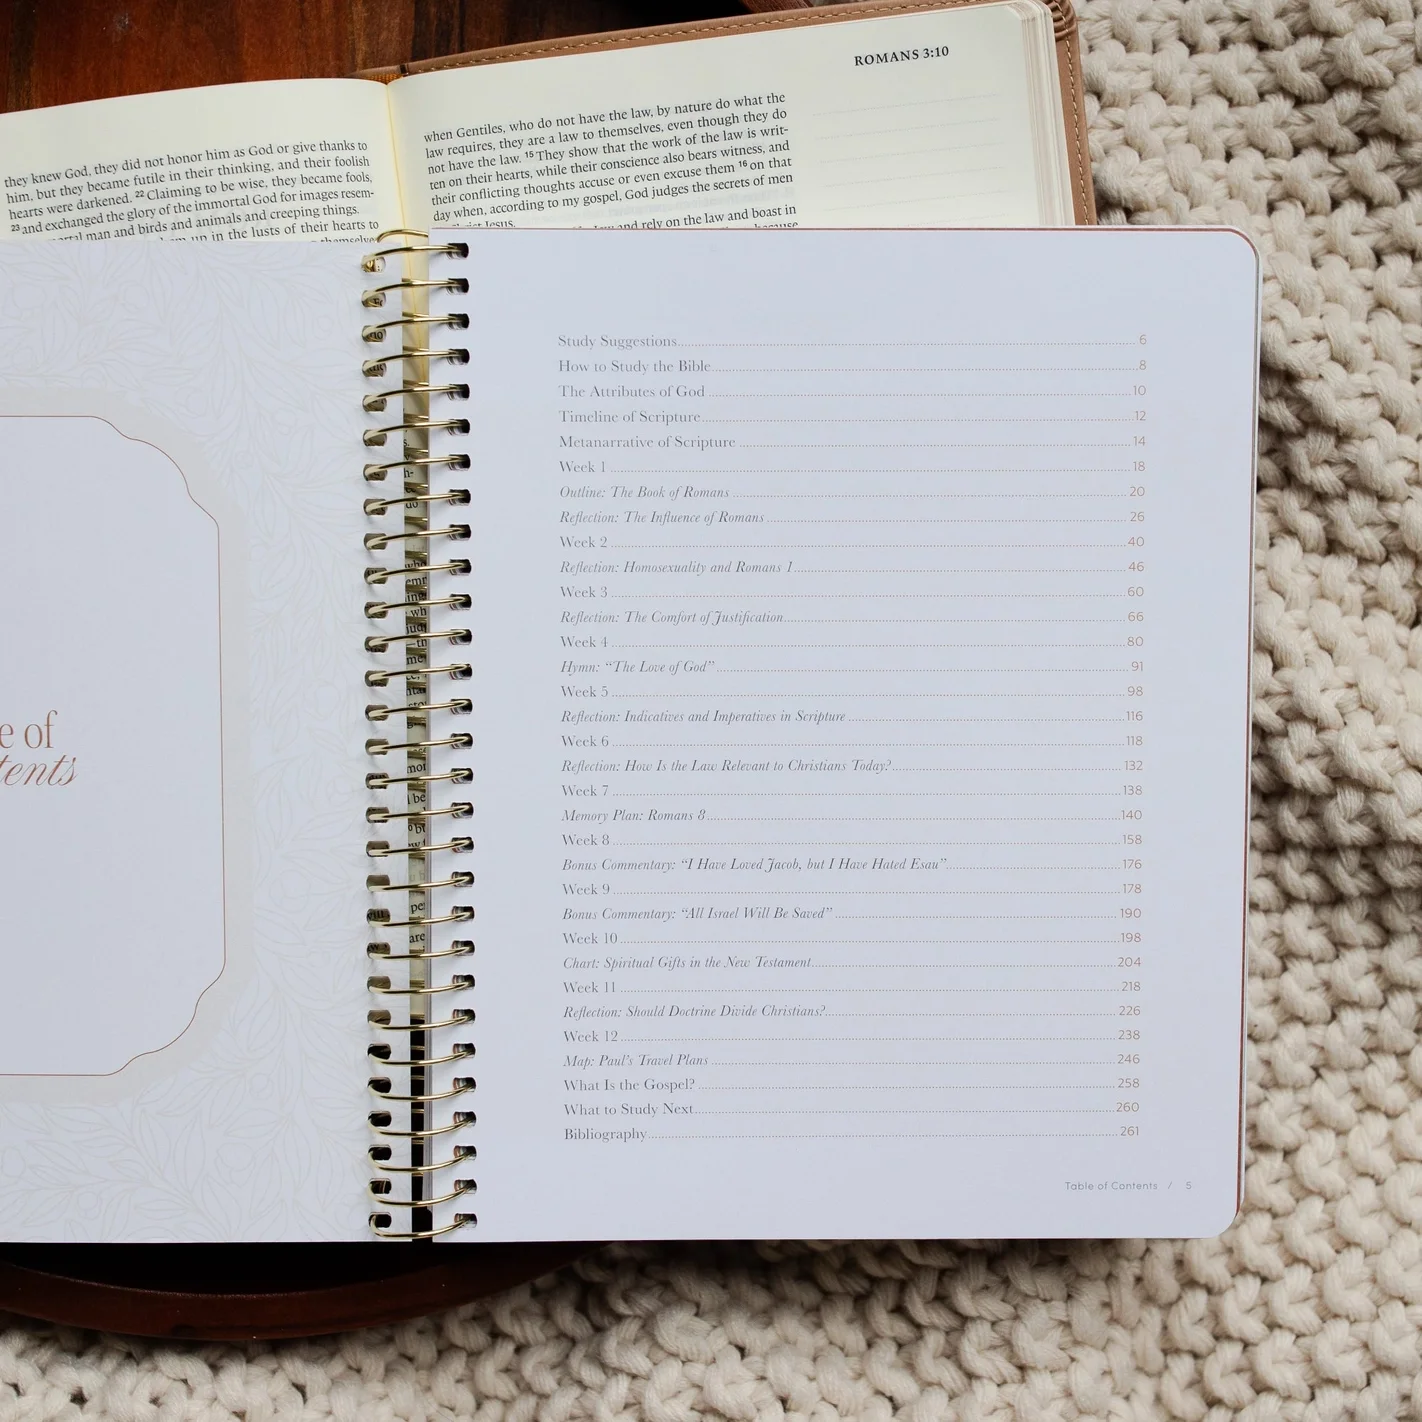 ROMANS 3:10
they knew God, they did not honor him as God or give thanks to
him, but they became futile in their thinking, and their foolish
hearts were darkened. 22 Claiming to be wise, they became fools,
23 and exchanged the glory of the immortal God for images resem-
man and birds and animals and creeping things.
up in the lusts of their hearts to
themselves
when Gentiles, who do not have the law, by nature do what the
law requires, they are a law to themselves, even though they do
not have the law. 15 They show that the work of the law is writ-
ten on their hearts, while their conscience also bears witness, and
their conflicting thoughts accuse or even excuse them 16 on that
day when, according to my gospel, God judges the secrets of men
Jesus.
and rely on the law and boast in
because
e of
tents
Study Suggestions 6
How to Study the Bible 8
The Attributes of God 10
Timeline of Scripture 12
Metanarrative of Scripture 14
Week 1 18
Outline: The Book of Romans 20
Reflection: The Influence of Romans 26
Week 2 40
Reflection: Homosexuality and Romans 1 46
Week 3 60
Reflection: The Comfort of Justification 66
Week 4 80
Hymn: “The Love of God” 91
Week 5 98
Reflection: Indicatives and Imperatives in Scripture 116
Week 6 118
Reflection: How Is the Law Relevant to Christians Today? 132
Week 7 138
Memory Plan: Romans 8 140
Week 8 158
Bonus Commentary: “I Have Loved Jacob, but I Have Hated Esau” 176
Week 9 178
Bonus Commentary: “All Israel Will Be Saved” 190
Week 10 198
Chart: Spiritual Gifts in the New Testament 204
Week 11 218
Reflection: Should Doctrine Divide Christians? 226
Week 12 238
Map: Paul’s Travel Plans 246
What Is the Gospel? 258
What to Study Next 260
Bibliography 261
Table of Contents / 5